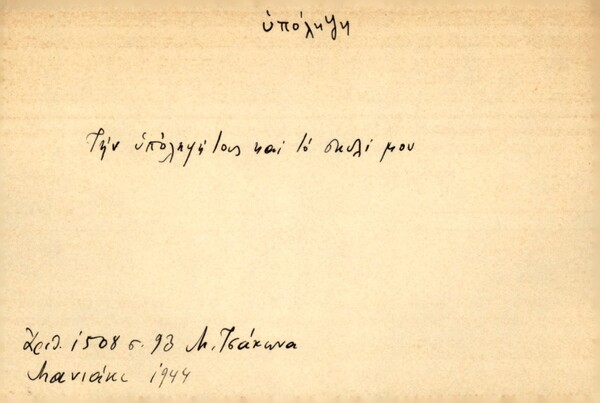 ὑπόληψη
Τὴν ὑπόληψή τους καὶ τὸ σκυλί μου
Ἀριθ. 1508 σ. 93 Μ. Τσάκωνα
Μανιάκι 1944